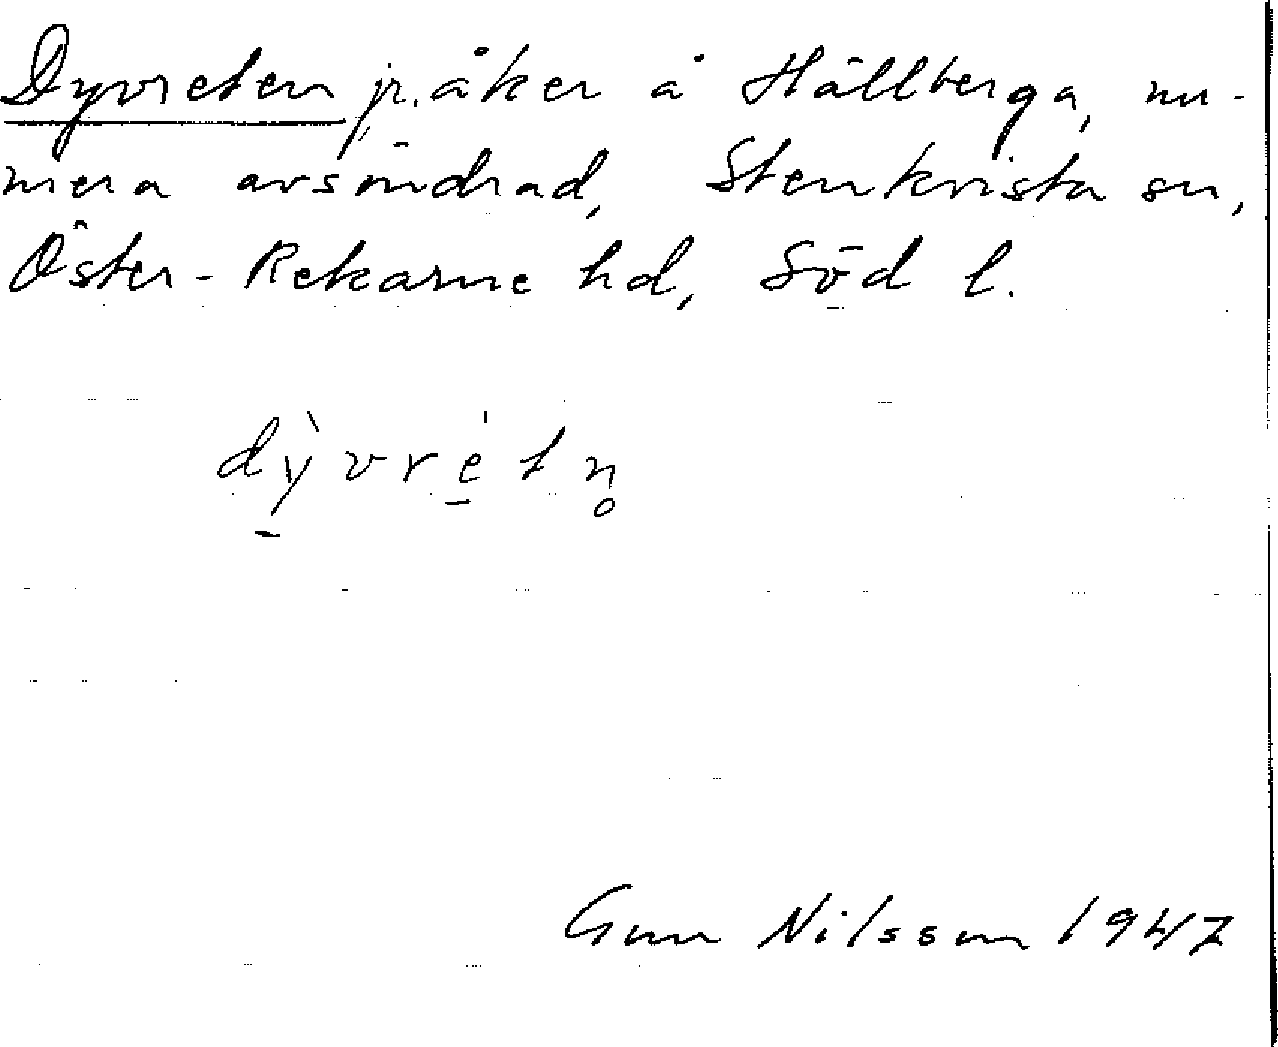 Dyvreten, åker å Hållberga, nu-
mera avsöndrad, Stenkvista sn,
Öster-Rekarne hd, Söd l.
dỳ̱vrė̱tn̥
Gun Nilsson 1947